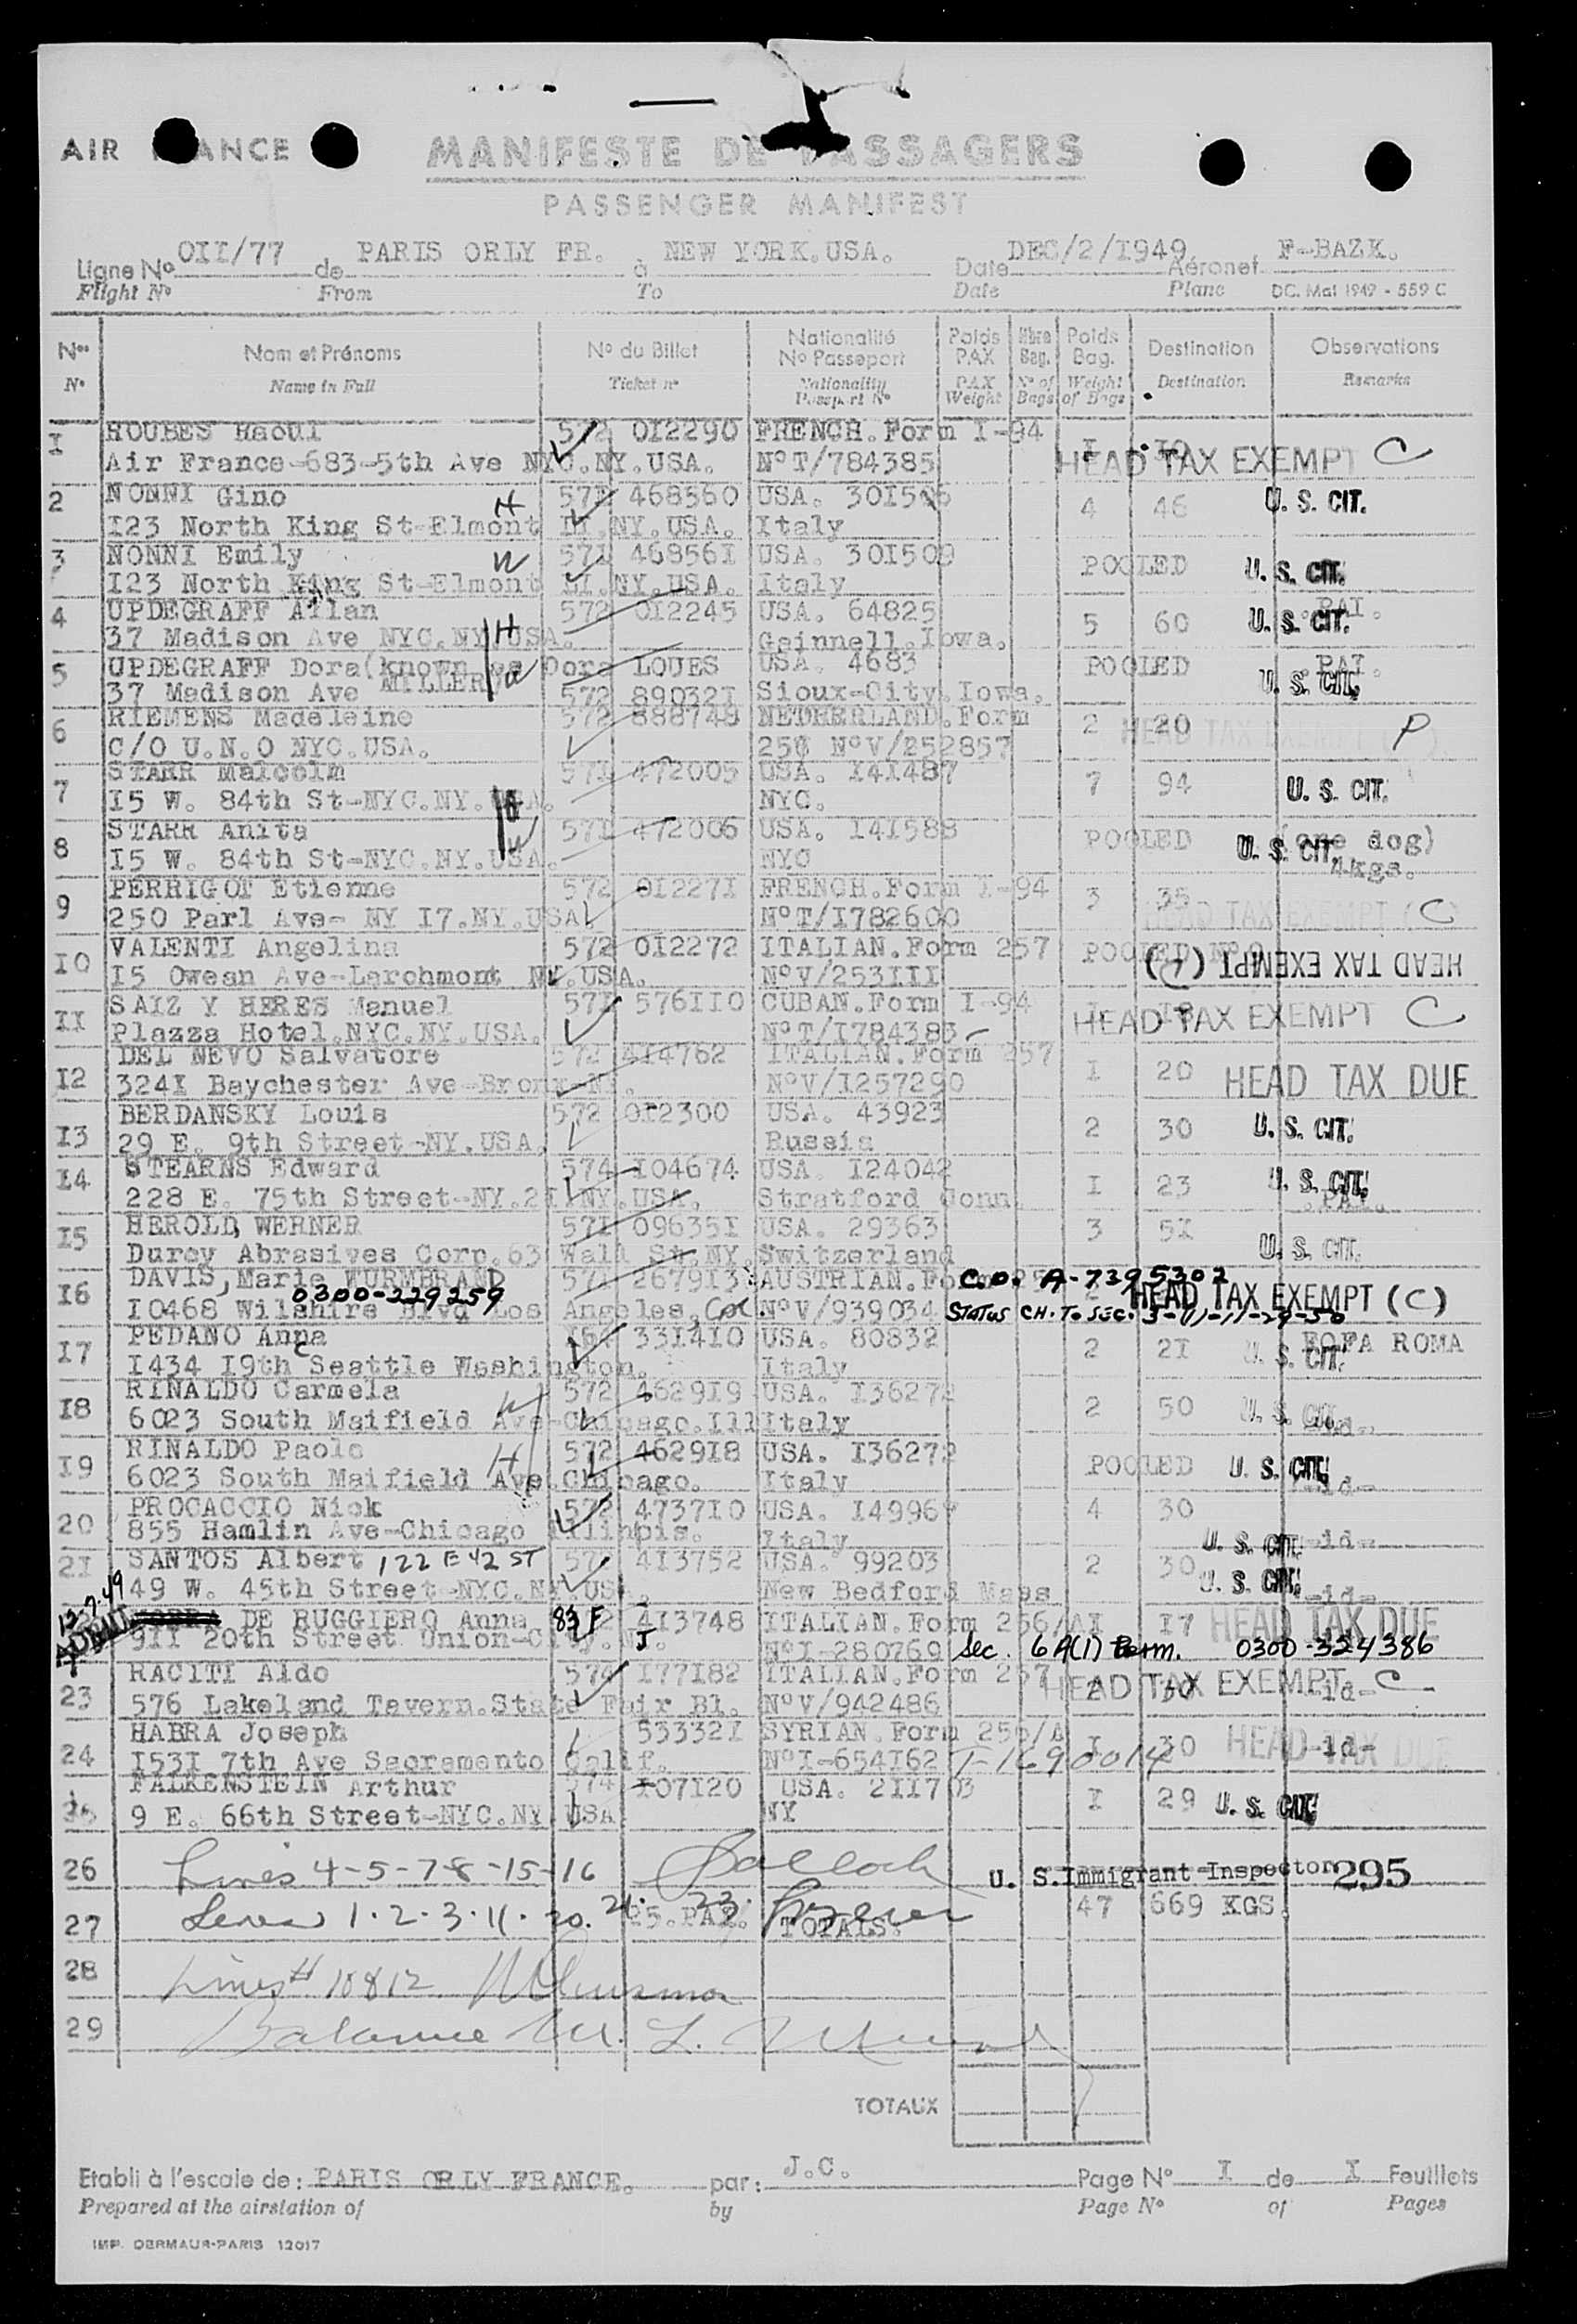 AIR FRANCE
MANIFESTE DE PASSAGERS
PASSENGER MANIFEST
Ligne No OII/77 de PARIS ORLY FR. à NEW YORK.USA. Date DEC/2/I949 Aéronef F-BAZK.
Flight No From To Date Plane DC. Mai 1949 - 559 C
Nos Nom et Prénoms No du Billet Nationalité No Passeport Poids PAX Nbre Bag. Poids Bag. Destination Observations
No Name in Full Ticket no Nationality Passport No PAX Weight No of Bags Weight of Bags Destination Remarks
I HOUBES Raoul 572 0I2290 FRENCH.Form I-94 I I0
Air France-683-5th Ave NYC.NY.USA. NoT/784385 HEAD TAX EXEMPT C
2 NONNI Gino H 571 468560 USA. 4 46 U. S. CIT.
I23 North King St-Elmont LI.NY.USA. Italy
3 NONNI Emily W 57I 46856I USA. 30I509 POOLED U. S. CIT.
I23 North King St-Elmont LI.NY.USA. Italy
4 UPDEGRAFF Allan H 572 0I2245 USA. 64825 5 60 U. S. CIT. .PAI.
37 Madison Ave NYC.NY.USA. Geinnell.Iowa.
5 UPDEGRAFF Dora(known as Dora LOUES USA 4683 POOLED .PAI.
37 Madison Ave MILLER) W 572 89032I Sioux-City.Iowa. U. S. CIT.
6 RIEMENS Madeleine 572 888748 NETHERLAND.Form 2 20 HEAD TAX EXEMPT P
C/O U.N.O NYC.USA. NoV/252857
7 STARR Malcolm 57I 472005 USA. I4I487 7 94 U. S. CIT.
I5 W. 84th St-NYC.NY.USA. H NYC.
8 STARR Anita W 57I 472006 USA. I4I588 POOLED (one dog)
I5 W. 84th St-NYC.NY.USA. NYC U. S. CIT. 4kgs.
9 PERRIGOT Etienne 572 0I227I FRENCH.Form I-94 3 35
250 Parl Ave- NY I7.NY.USA NoT/I782600 HEAD TAX EXEMPT (C)
I0 VALENTI Angelina 572 0I2272 ITALIAN.Form 257 POOLED No9
I5 Owean Ave-Larchmont NY.USA. NoV/253III HEAD TAX EXEMPT
II SAIZ Y HERES Manuel 57I 576II0 CUBAN.Form I-94 I I8
Plazza Hotel.NYC.NY.USA. NoT/I784383 HEAD TAX EXEMPT C
I2 DEL NEVO Salvatore 572 4I4762 ITALIAN.Form 257 I 20 HEAD TAX DUE
324I Baychester Ave-Bronx-NY. NoV/I257290
I3 BERDANSKY Louis 572 0I2300 USA. 43923 2 30 U. S. CIT.
29 E. 9th Street-NY.USA. Russia
I4 STEARNS Edward 574 I04674 USA. I24042 I 23 U. S. CIT.
228 E. 75th Street-NY.2I NY.USA. Stratford Conn. .PAI.
I5 HEROLD, WERNER 57I 09635I USA. 29363 3 5I U. S. CIT.
Durey Abrasives Corp.63 Wall St.NY. Switzerland
I6 DAVIS, Marie WURMBRAND 57I 2679I3 AUSTRIAN. C.O. A-7395302
0300-229259 HEAD TAX EXEMPT (C)
I0468 Wilshire Blvd Los Angeles, Cal. NoV/939034 Status CH. To Sec. 3-(1)-11-29-50
I7 PEDANO Anna 33I4I0 USA. 80832 2 2I FOFA ROMA
I434 I9th Seattle Washington. Italy U. S. CIT.
I8 RINALDO Carmela W 572 4629I9 USA. I36272 2 50 U. S. CIT. -id-
6023 South Maifield Ave-Chicago.Ill Italy
I9 RINALDO Paolo H 572 4629I8 USA. I36272 POOLED U. S. CIT. -id-
6023 South Maifield Ave.Chicago. Italy
20 PROCACCIO Nick 572 4737I0 USA. 4 30
855 Hamlin Ave-Chicago Illinois. Italy U. S. CIT. -id-
2I SANTOS Albert 122 E 42 ST 572 4I3752 USA. 99203 2 30
49 W. 45th Street-NYC.NY.USA. New Bedford Mass U. S. CIT. -id-
12-7-49 DE RUGGIERO Anna 83 F 4I3748 ITALIAN.Form 256/A I I7 HEAD TAX DUE
9II 20th Street Union-City.NJ. NoI-280769 Sec. 6A(1) Perm. 0300-324386
23 RACITI Aldo 574 I77I82 ITALIAN.Form 257
576 Lakeland Tavern.State Fair Bl. NoV/942486 HEAD TAX EXEMPT -id- C
24 HABRA Joseph 53332I SYRIAN.Form 256/A I 30 HEAD TAX DUE -id-
I53I 7th Ave Sacramento Calif. NoI-654I62 T-1690014
FALKENSTEIN Arthur 574 I07I20 USA. 2II703 I 29 U. S. CIT.
9 E. 66th Street-NYC.NY USA NY
26 Lines 4-5-7-8-15-16 U. S. Immigrant Inspector 295
27 Lines 1.2.3.11.20.21.23. 25.PAX. TOTALS. 47 669 KGS
28 Lines # 10 & 12
29 Balance
TOTAUX
Etabli à l'escale de: PARIS ORLY FRANCE. par: J.C. Page No I de I Feuillets
Prepared at the airstation of by Page No of Pages
IMP. DERMAUR-PARIS 12017